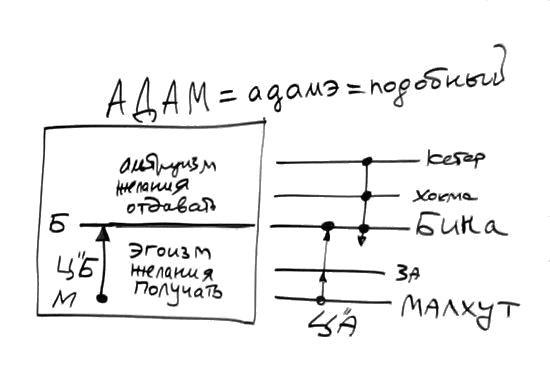 АДАМ = адамэ = подобный
альтруизм
желания
отдавать
Б
Ц"Б
М
эгоизм
желания
получать
кетер
хокма
БИНА
ЗА
МАЛХУТ
Ц"А